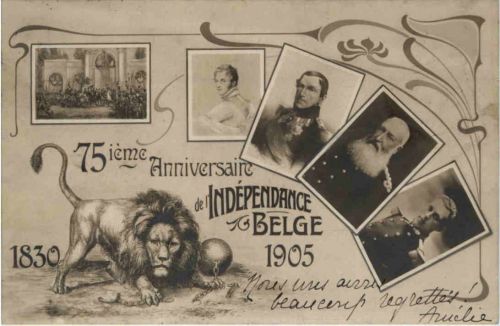 75ième Anniversaire
de l'INDÉPENDANCE
BELGE
1830
1905
Nous vous avons
beaucoup regrettés!
Amélie